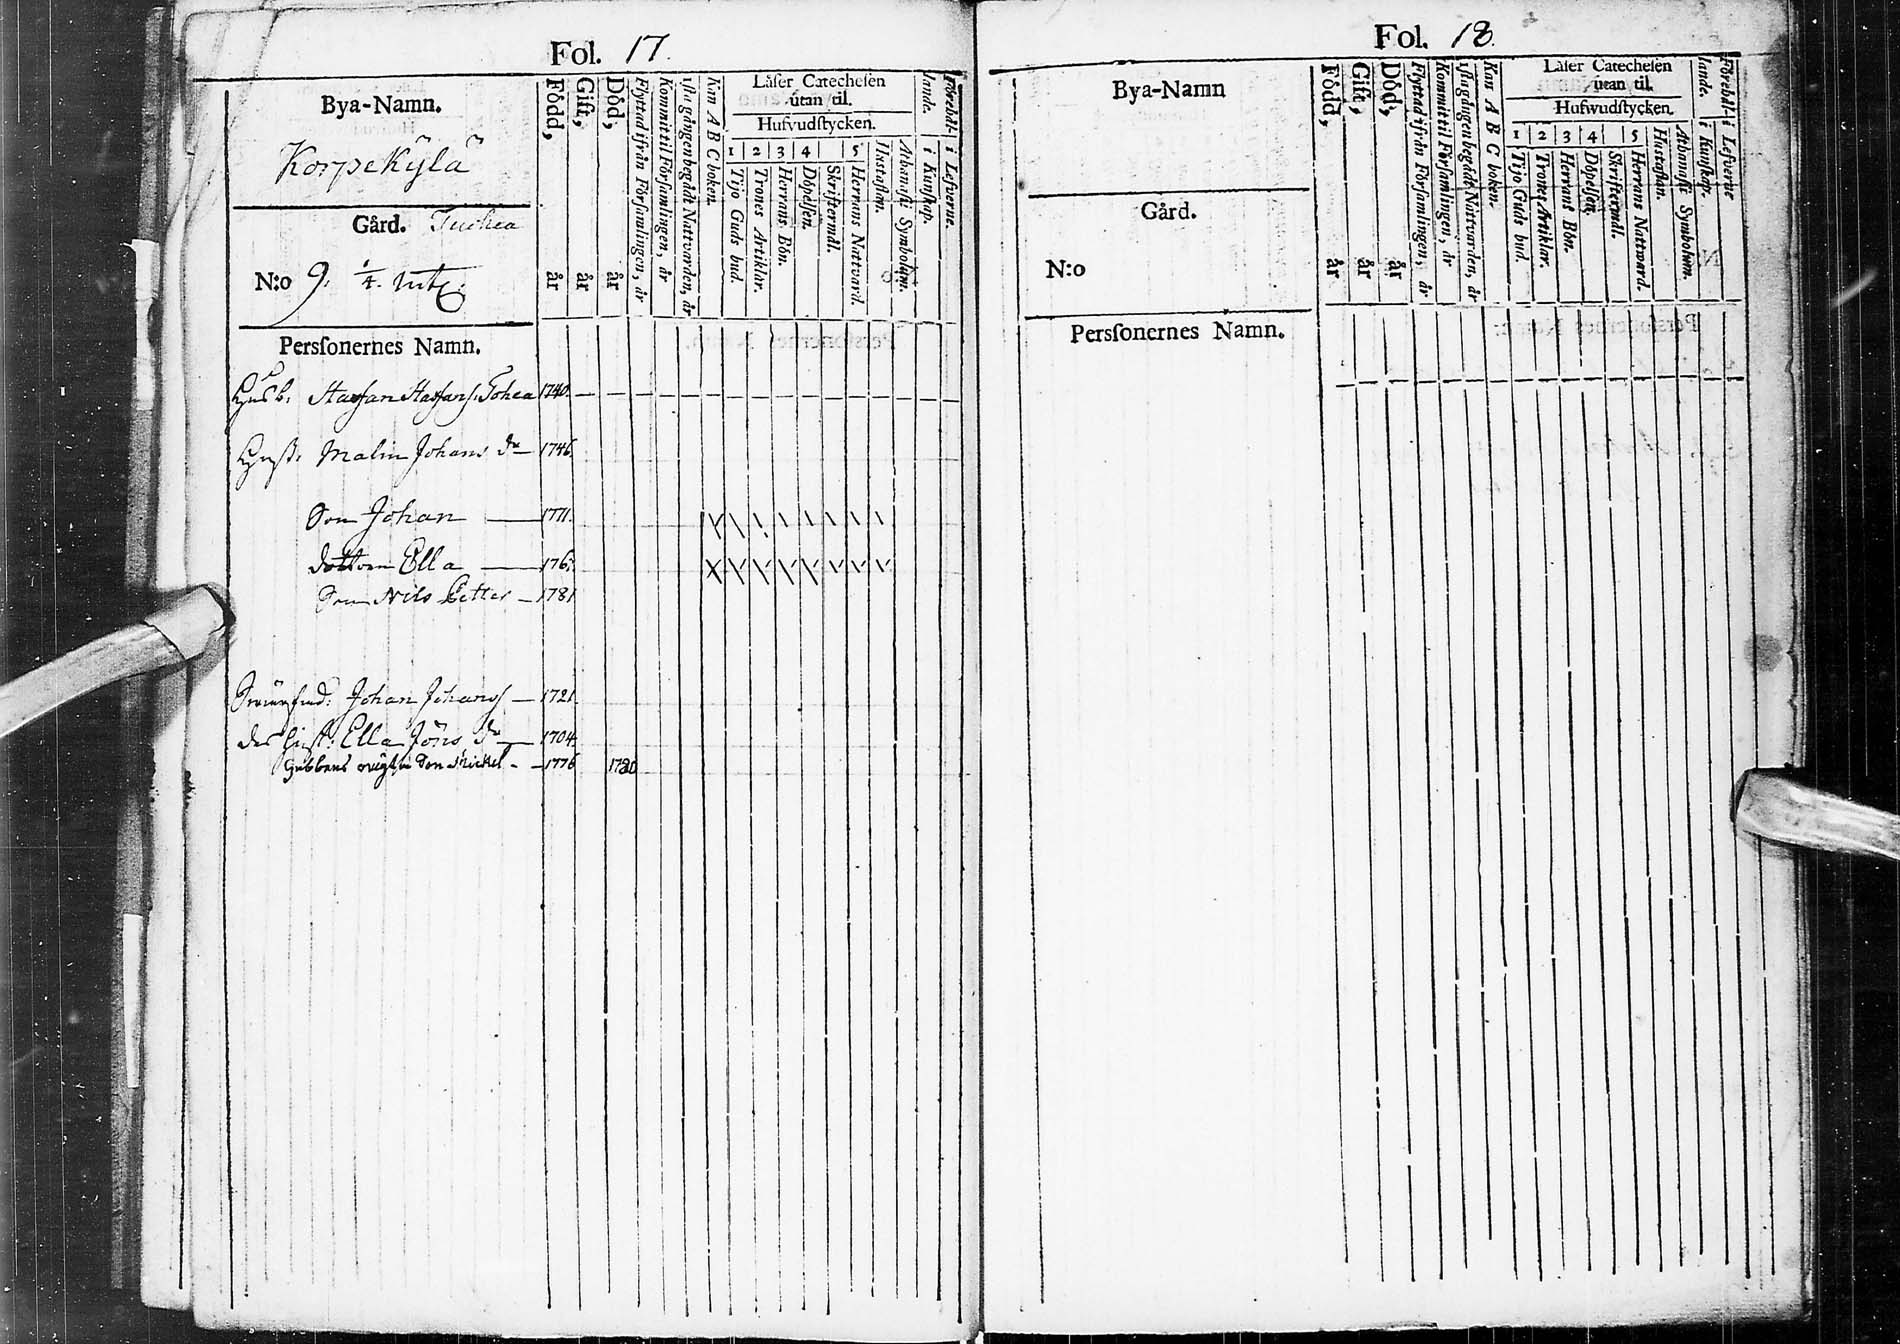 Fol. 17.
Bya-Namn.
Korpekÿlä
Gård. Tuohea
N:o 9. 1/4. mtl.
Född, år
Gift, år
Död, år
Flyttad ifrån Församlingen, år
Kommit til Församlingen, år
sista gången begådt Nattvarden, år
Kan A B C boken.
Läser Catechesen
utan til.
Hufvudstycken.
1 2 3 4 5
Tijo Guds bud.
Trones Artiklar.
Herrans Bön.
Döpelsen.
Skriftermål.
Herrans Nattvard.
Hustaflan.
Athanasii Symbolum.
Förehål-
lande.
i Kunskap.
i Lefverne.
Perssonernes Namn.
Husb: Staffan Staffans: Tohea 1740.
Hust: Malin Johans dr 1746.
Son Johan 1771.
dottren Ella 176
Son Nils Petter 1781
Johan Johanss 1721.
des Hust: Ella Jöns dr 1704.
Gubbens son Mickel 1776 1780
Fol. 18.
Bya-Namn
Gård.
N:o
Född, år
Gift, år
Död, år
Flyttad ifrån Församlingen, år
Kommit til Församlingen, år
sista gången begådt Nattvarden, år
Kan A B C boken.
Läser Catechesen
utan til.
Hufwudstycken.
1 2 3 4 5
Tijo Guds bud.
Trones Artiklar.
Herrans Bön.
Döpelsen.
Skriftermål.
Herrans Nattward.
Hustaflan.
Athanasii Symbolum.
Förehål-
lande.
i Kunskap.
i Lefverne
Perssonernes Namn.